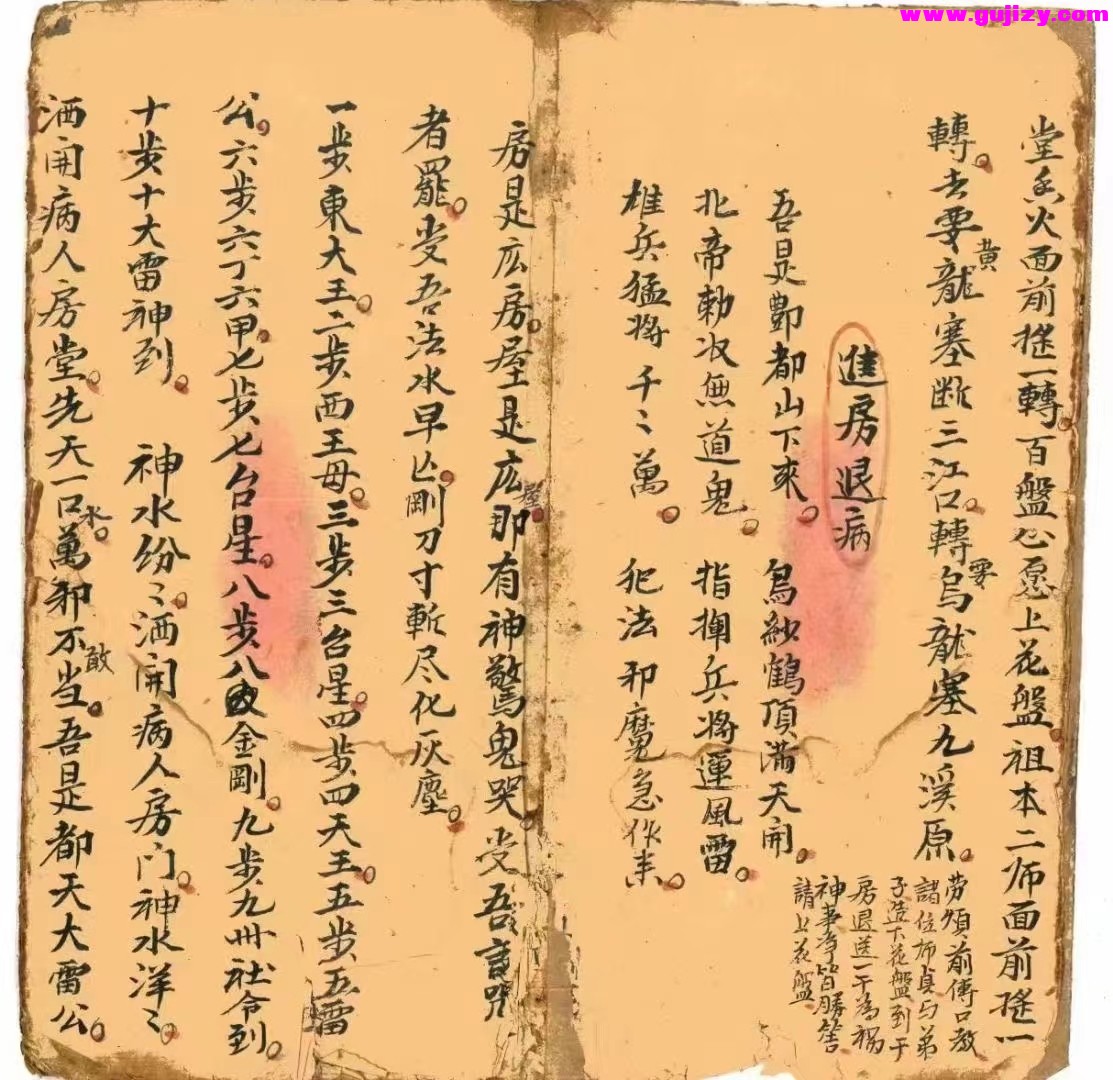 www.gujizy.com
堂香火面前搖一轉百盤心愿上花盤祖本二师面前搖一
轉去要黃龍塞断三江口轉要烏龍塞九溪原
劳煩前傳口教
諸位师真与弟
子造下花盤到于
房退送一干為禍
神事凖皆勝筶
請上花盤
進房退病
吾是酆都山下來 烏紗鶴頂滿天開
北帝勅收無道鬼 指揮兵将運風雷
雄兵猛将千〻萬 犯法邪魔急作
房是広房屋是広屋那有神驚鬼哭受吾言咒
者罷受吾法水早亡剛刀寸斬尽化灰塵
一步東大王二步西王母三步三台星四步四天王五步五雷
公六步六丁六甲七步七台星八步八金剛九步九州社令到
十步十大雷神到 神水纷〻洒開病人房门神水洋〻
洒開病人房堂先天一口水萬邪不敢当吾是都天大雷公